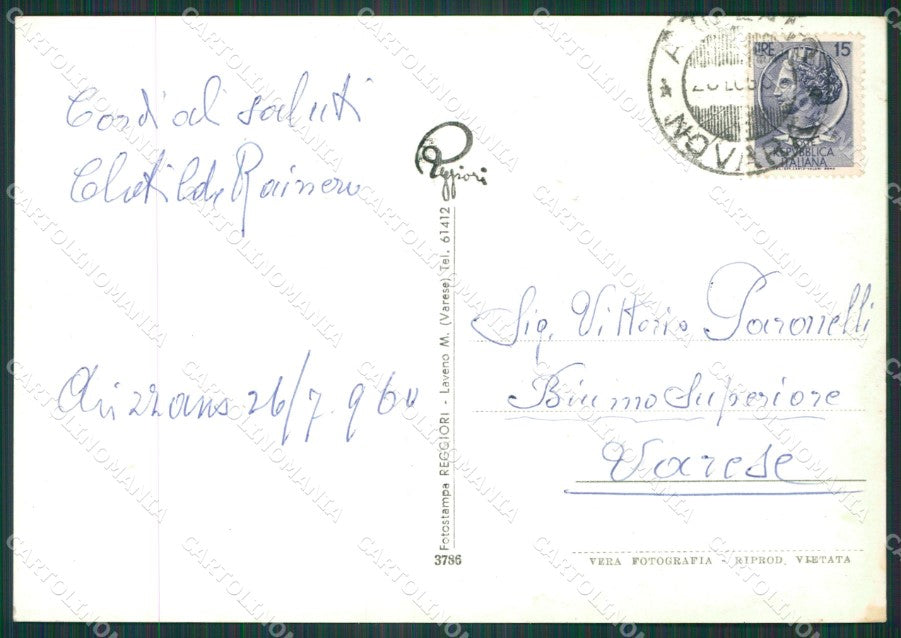 Cordiali saluti
Clotilde Rainero
26/7.960
Reggiori
Fotostampa REGGIORI - Laveno M. (Varese) Tel. 61412
3786
LIRE 15
REPVBBLICA
ITALIANA
NOVARA
Sig. Vittorio Paronelli
Biumo Superiore
Varese
VERA FOTOGRAFIA - RIPROD. VIETATA
CARTOLINOMANIA